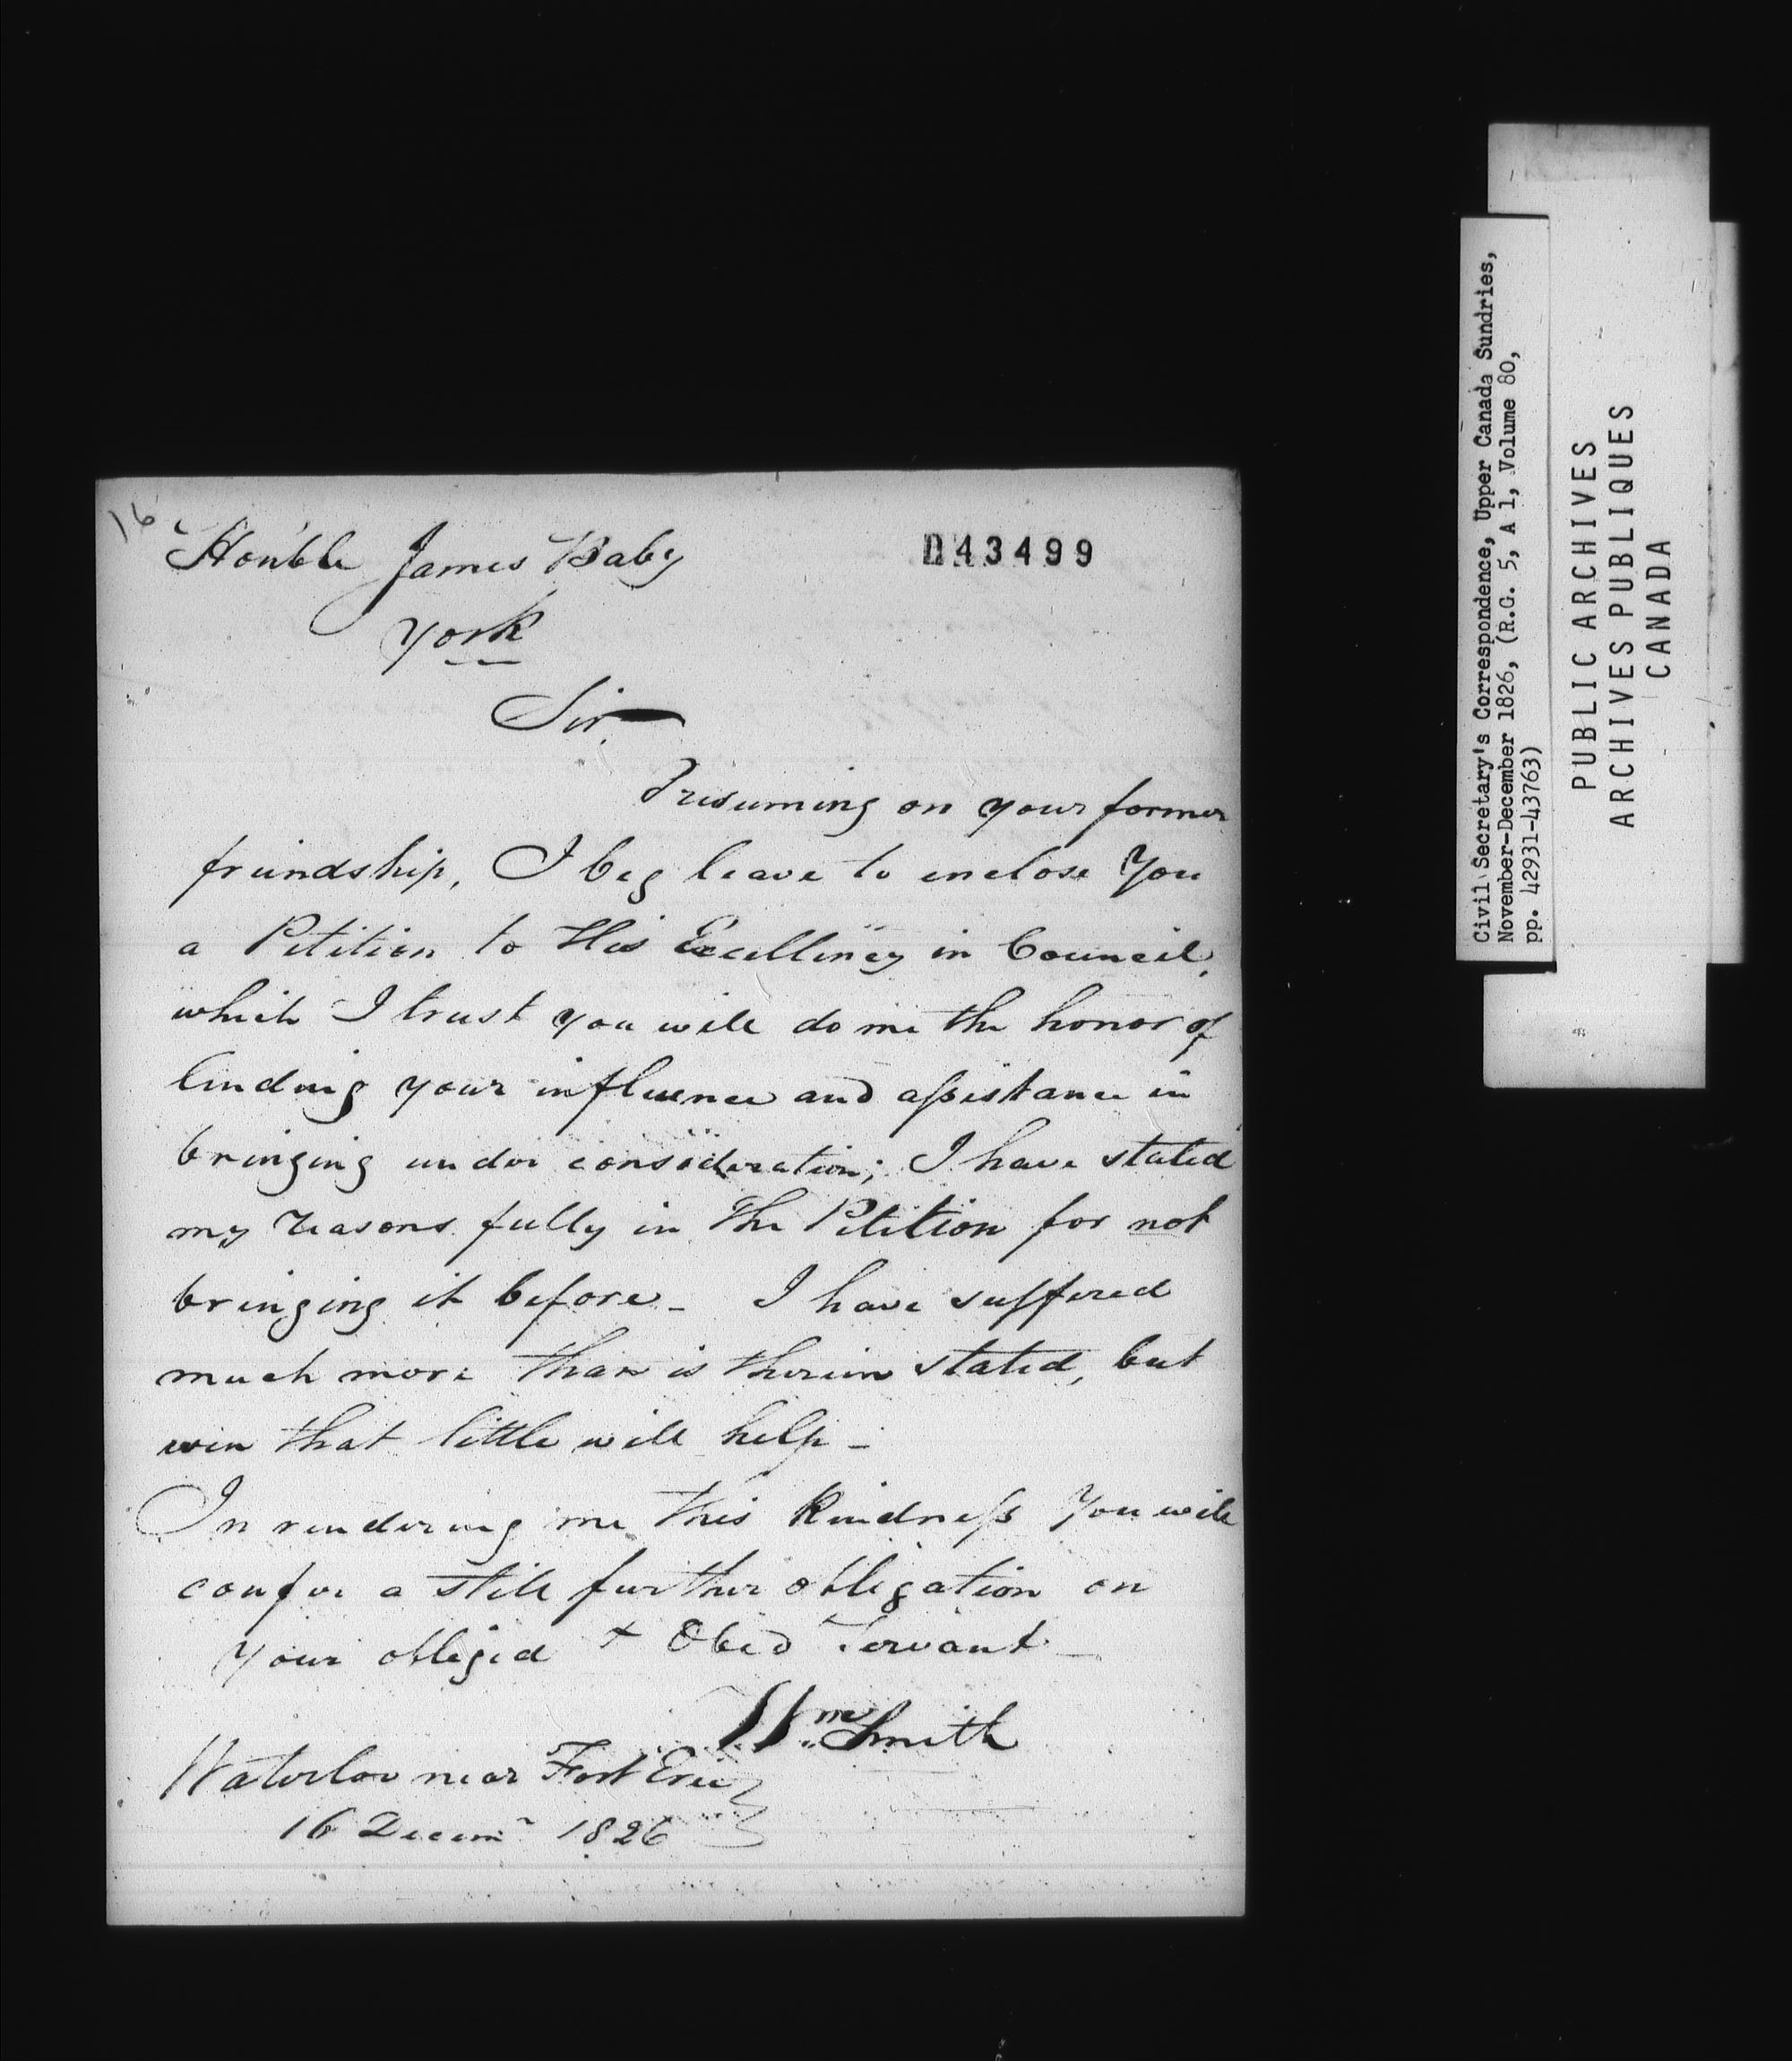 16
Honble James Baby
043499
York
Sir
Presuming on your former
friendship, I beg leave to enclose You
a Petition to His Excellency in Council,
which I trust you will do me the honor of
lending your influence and assistance in
bringing under consideration; I have stated
my reasons fully in the Petition for not
bringing it before - I have suffered
much more than is therein stated, but
even that little will help -
In rendering me this kindness You will
confer a still further obligation on
Your obliged & Obed Servant
Wm Smith
Waterloo near Fort Erie
16 Decemr 1826
Civil Secretary's Correspondence, Upper Canada Sundries,
November-December 1826, (R.G. 5, A 1, Volume 80,
pp. 42931-43763)
PUBLIC ARCHIVES
ARCHIVES PUBLIQUES
CANADA